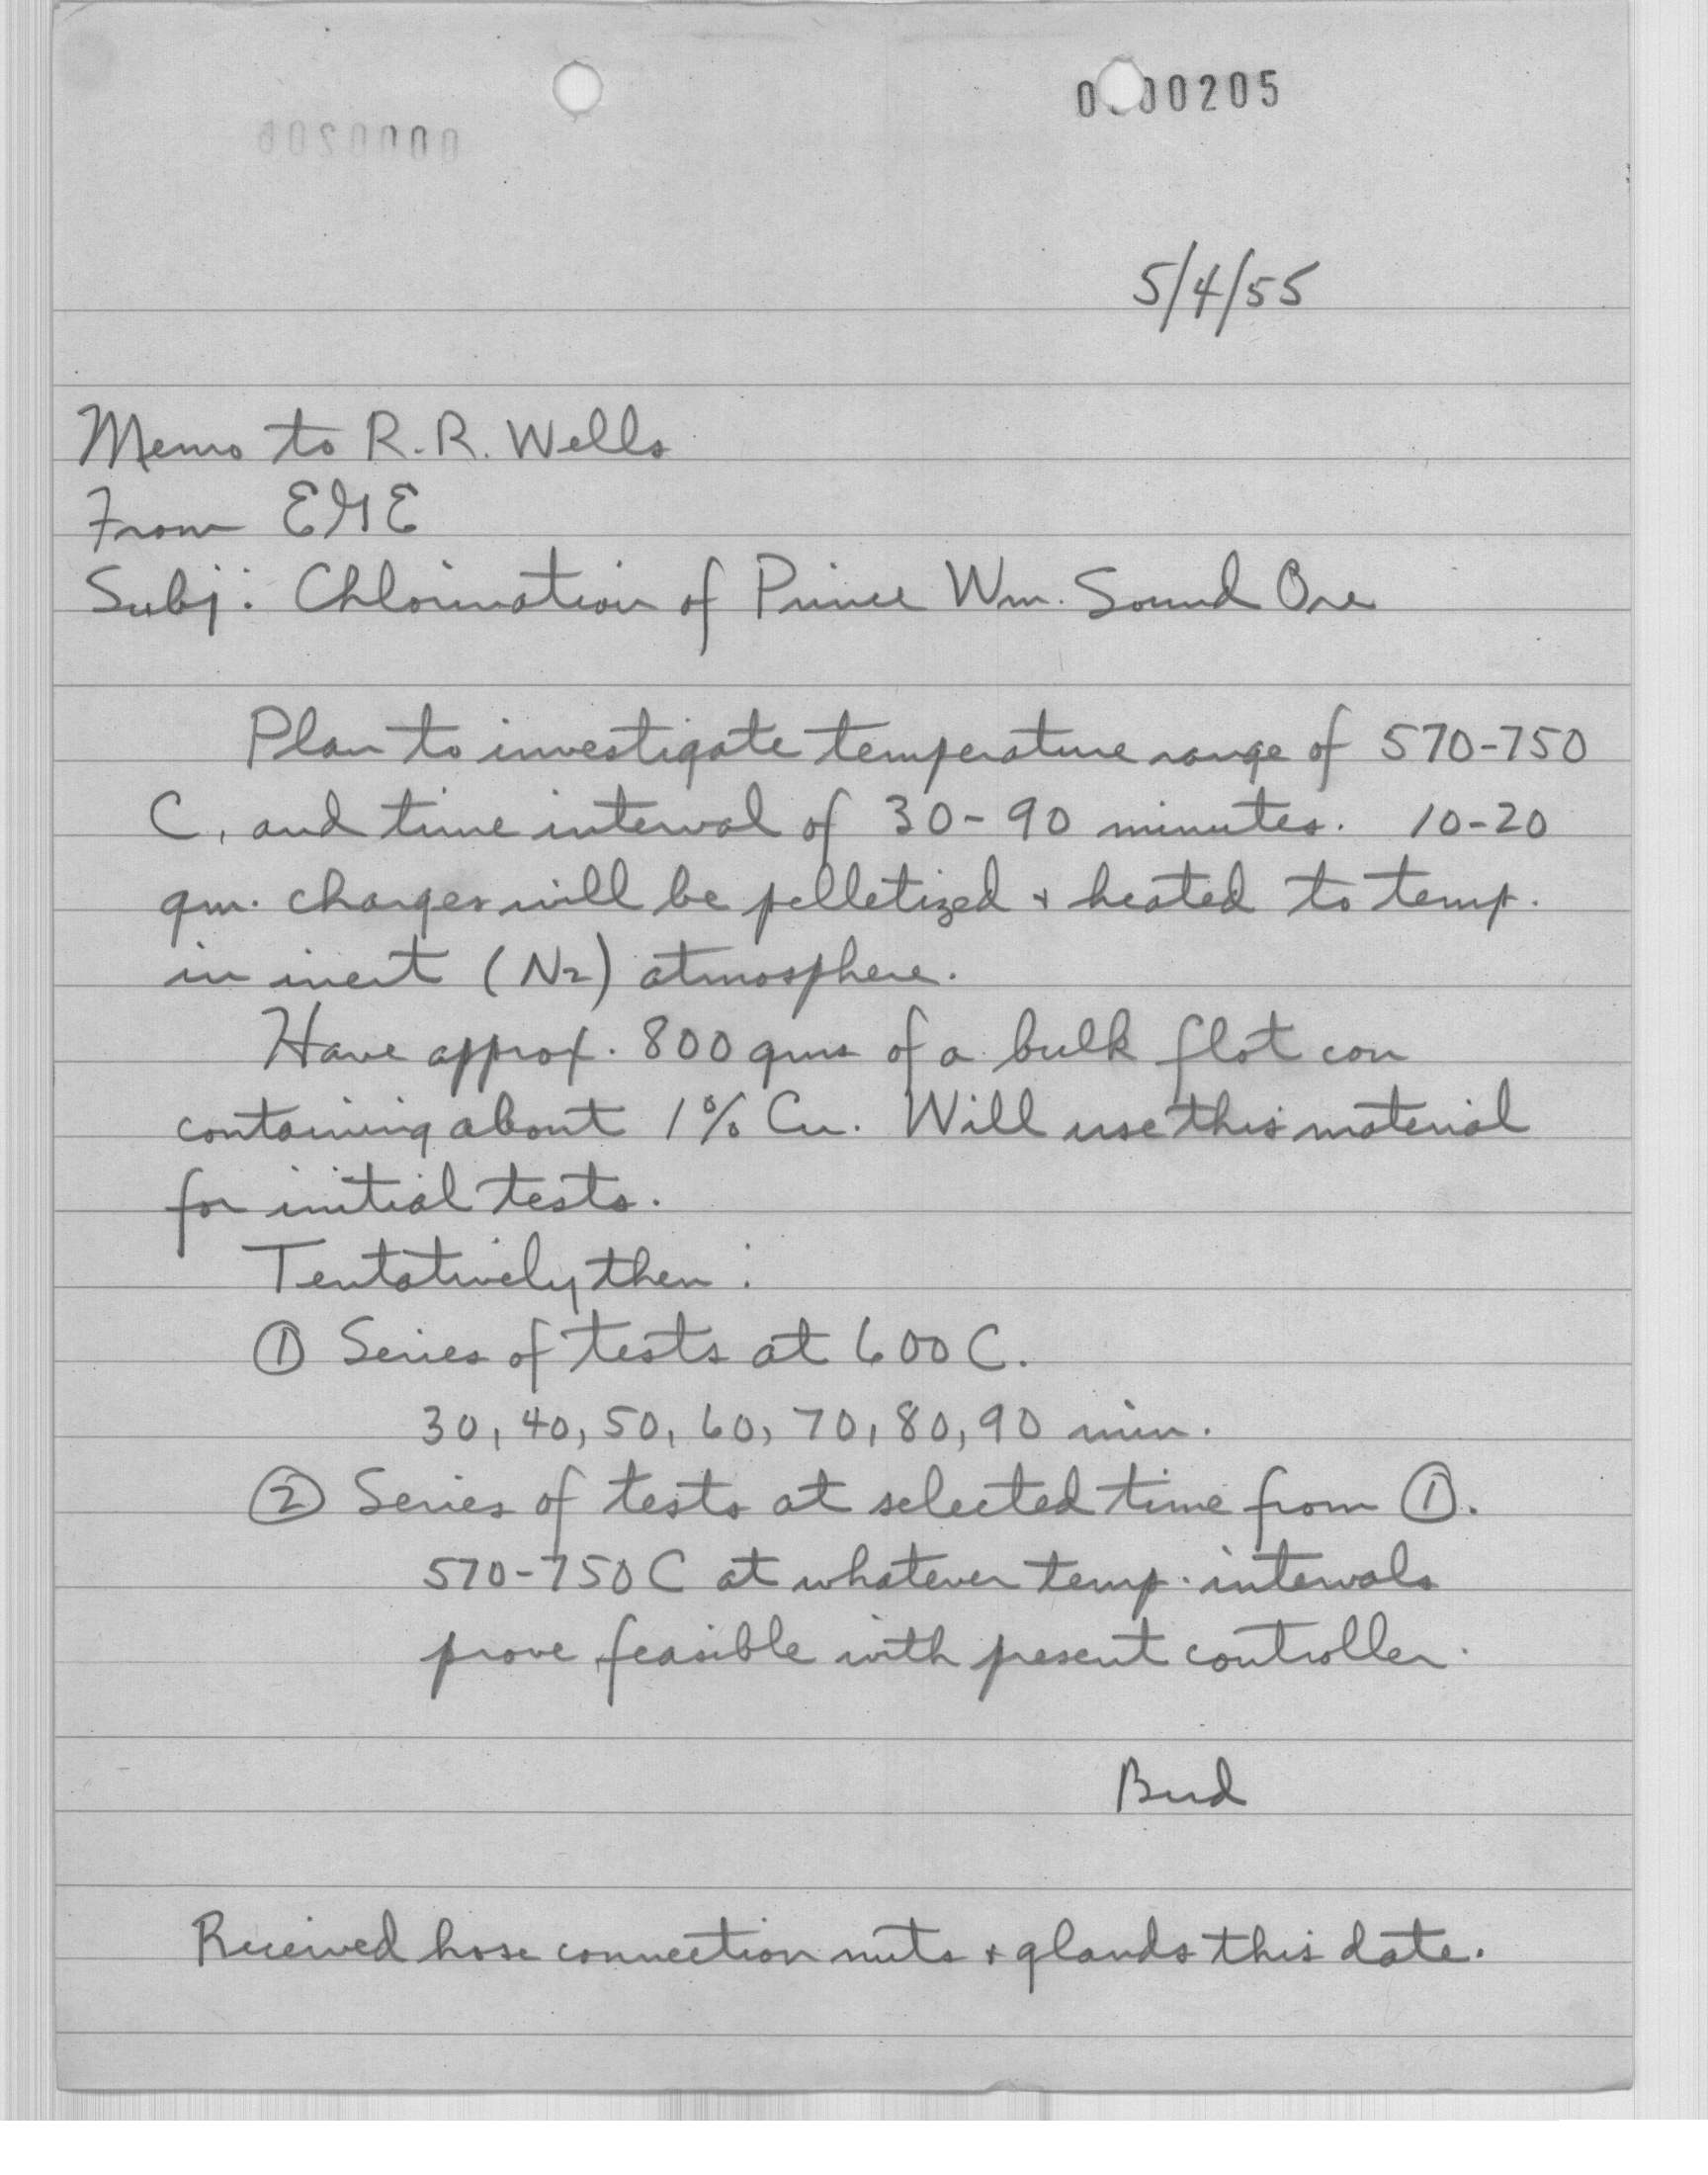 00205
5/4/55
Memo to R.R. Wells
From
Subj: Chlorination of Prince Wm. Sound Ore
Plan to investigate temperature range of 570-750
C, and time interval of 30-90 minutes. 10-20
gm. charges will be pelletized + heated to temp.
in inert (N2) atmosphere.
Have approx. 800 gms of a bulk flot con
containing about 1% Cu. Will use this material
for initial tests.
Tentatively then:
① Series of tests at 600 C.
30, 40, 50, 60, 70, 80, 90 min.
② Series of tests at selected time from ①.
570-750 C at whatever temp. intervals
prove feasible with present controller.
Bud
Received hose connection nuts + glands this date.